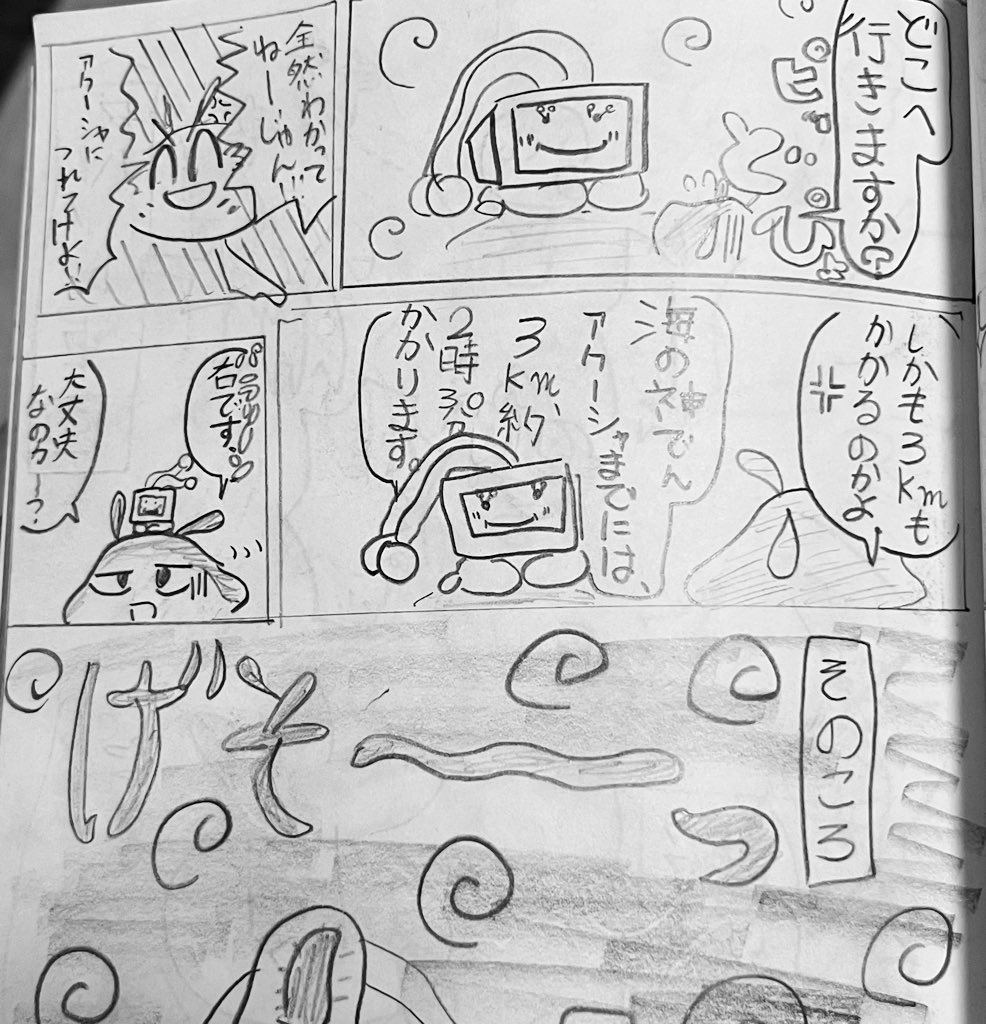 どこへ
行きますか?
ピッ
全然わかって
ねーじゃん!!
アクーシャに
つれてけよ!!
しかも3kmも
かかるのかよ
海の神でん
アクーシャまでには、
3km、約
2時30分
かかります。
右です。
大丈夫
なのかー?
そのころ
げそーっ